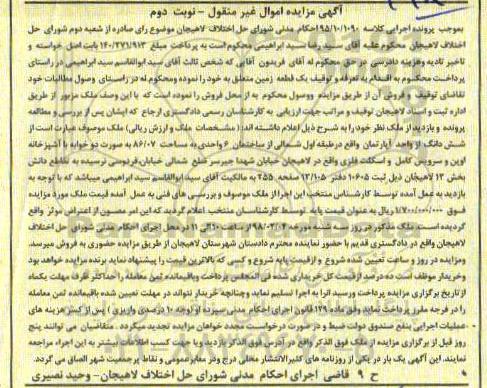 آگهی مزایده اموال غیر منقول – نوبت دوم
بموجب پرونده اجرایی کلاسه ۹۵/۱۰/۱۰۹۰ احکام مدنی شورای حل اختلاف لاهیجان موضوع رای صادره از شعبه دوم شورای حل
اختلاف لاهیجان محکوم علیه آقای سید رضا سید ابراهیمی محکوم است به پرداخت مبلغ ۱۴۰/۲۷۱/۹۱۳ بابت اصل خواسته و
تاخیر تادیه و هزینه دادرسی در حق محکوم له آقای فریدون آقایی که شخص ثالث آقای سید ابوالقاسم سید ابراهیمی در راستای
پرداخت محکوم به اقدام به تعرفه و توقیف یک قطعه زمین متعلق به خود را نموده ومحکوم له در راستای وصول مطالبات خود
تقاضای توقیف و فروش آن از طریق مزایده ووصول محکوم به از محل فروش را نموده است که با این وصف ملک مزبور از طریق
اداره ثبت و اسناد لاهیجان توقیف و مراتب جهت ارزیابی به کارشناسان رسمی دادگستری ارجاع که ایشان پس از بررسی و مطالعه
پرونده و بازدید از ملک نظر خود را به شرح ذیل اعلام داشته اند: ( مشخصات ملک و ارزش ریالی) ملک موصوف عبارت است از
شش دانگ از واحد آپارتمان واقع در طبقه اول شمالی از ساختمان ۶ واحدی به مساحت ۸۶/۰۷ به صورت دو خوابه با آشپزخانه
اوپن و سرویس کامل و اسکلت فلزی واقع در لاهیجان خیابان شهدا جیرسر ضلع شمالی خیابان فردوسی نرسیده به تقاطع دانش
بخش ۱۳ لاهیجان ذیل ثبت ۱۰۶۰۵ دفتر ۱۳/۱۰۵ صفحه ۲۵۵ به مالکیت آقای سید ابوالقاسم سید ابراهیمی میباشد که با توجه به
بازدید به عمل آمده توسط کارشناس منتخب این اجرا از ملک موصوف و بررسی های فنی به عمل آمده قیمت ملک مورد مزایده
فوق ۱/۷۰۰/۰۰۰/۰۰۰ ریال به عنوان قیمت پایه توسط کارشناسان منتخب اعلام گردید که این امر مصون از اعتراض موثر واقع
گردیده است. ملک مذکور در روز سه شنبه مورخه ۹۸/۰۲/۰۳ از ساعت ۱۰ الی ۱۱ در محل اجرای احکام مدنی شورای حل اختلاف
لاهیجان واقع در دادگستری قدیم با حضور نماینده محترم دادستان شهرستان لاهیجان از طریق مزایده حضوری به فروش میرسد.
ومزایده در روز و ساعت تعیین شده شروع و از قیمت پایه شروع و کسی که بالاترین قیمت را پیشنهاد نماید برنده مزایده خواهد بود
وخریدار موظف است ده درصد از قیمت کل خریداری شده فی المجلس پرداخت وباقیمانده ثمن معامله را حداکثر ظرف مهلت یکماه
از تاریخ برگزاری مزایده پرداخت ورسید آنرا به اجرا تسلیم نماید وچنانچه خریدار نتواند در مهلت تعیین شده باقیمانده ثمن معامله
را در فرجه مقرر پرداخت نماید وفق ماده ۱۲۹ قانون اجرای احکام مدنی سپرده او (وجه ۱۰ درصدی واریزی ) پس از کسر هزینه های
عملیات اجرایی بنفع صندوق دولت ضبط و در صورت درخواست مجدد خواهان مزایده تجدید میگردد . متقاضیان می توانند پنج
روز قبل از برگزاری مزایده از ملک فوق الذکر واقع در آدرس فوق الذکر بازدید ویا جهت کسب اطلاعات بیشتر به این اجراء مراجعه
نمایند. این آگهی یک بار در یکی از روزنامه های کثیرالانتشار محلی درج ودر معابر عمومی و نقاط پر جمعیت شهر الصاق می گردد.
ح ۹ قاضی اجرای احکام مدنی شورای حل اختلاف لاهیجان- وحید نصیری